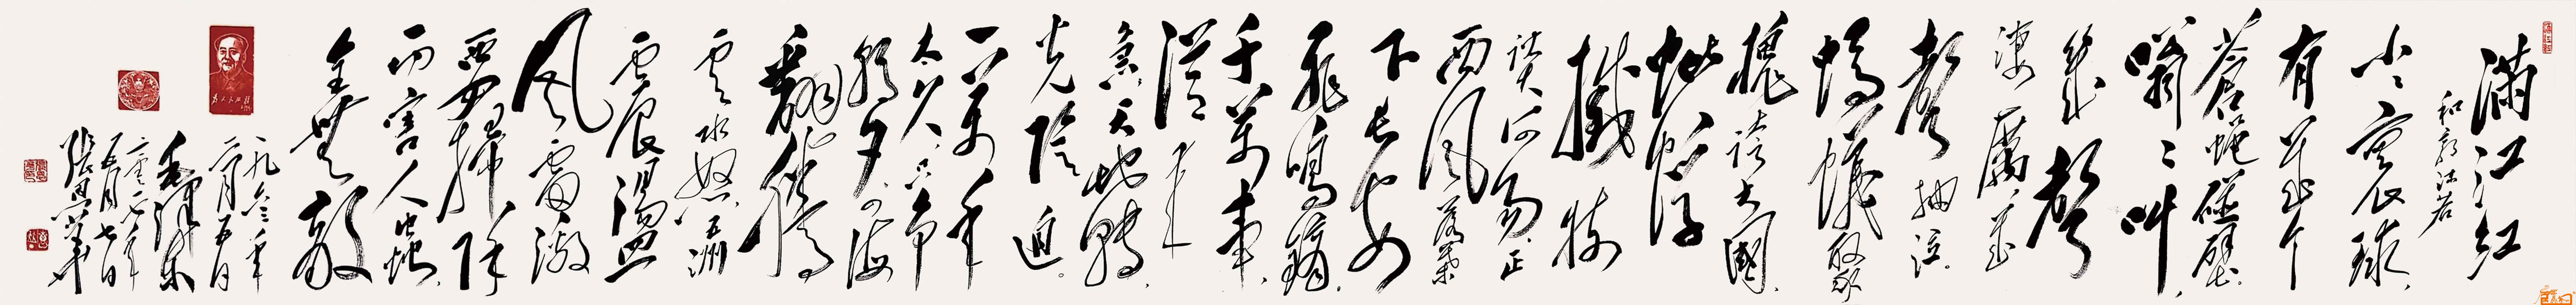 满江红
和郭沫若
小小寰球
有几个
苍蝇碰壁
嗡嗡叫
几声
凄厉几
声抽泣
蚂蚁缘
槐夸大国
蚍蜉
撼树
谈何易正
西风落葉
下长安
飞鸣镝
千万事
从来
急天地转
光阴迫
一万年
太久只争
朝夕四海
翻腾
云水怒五洲
震荡
风雷激
要扫除
一切害人虫
全无敌
一九六三年
二月五日
毛泽东
五月七日